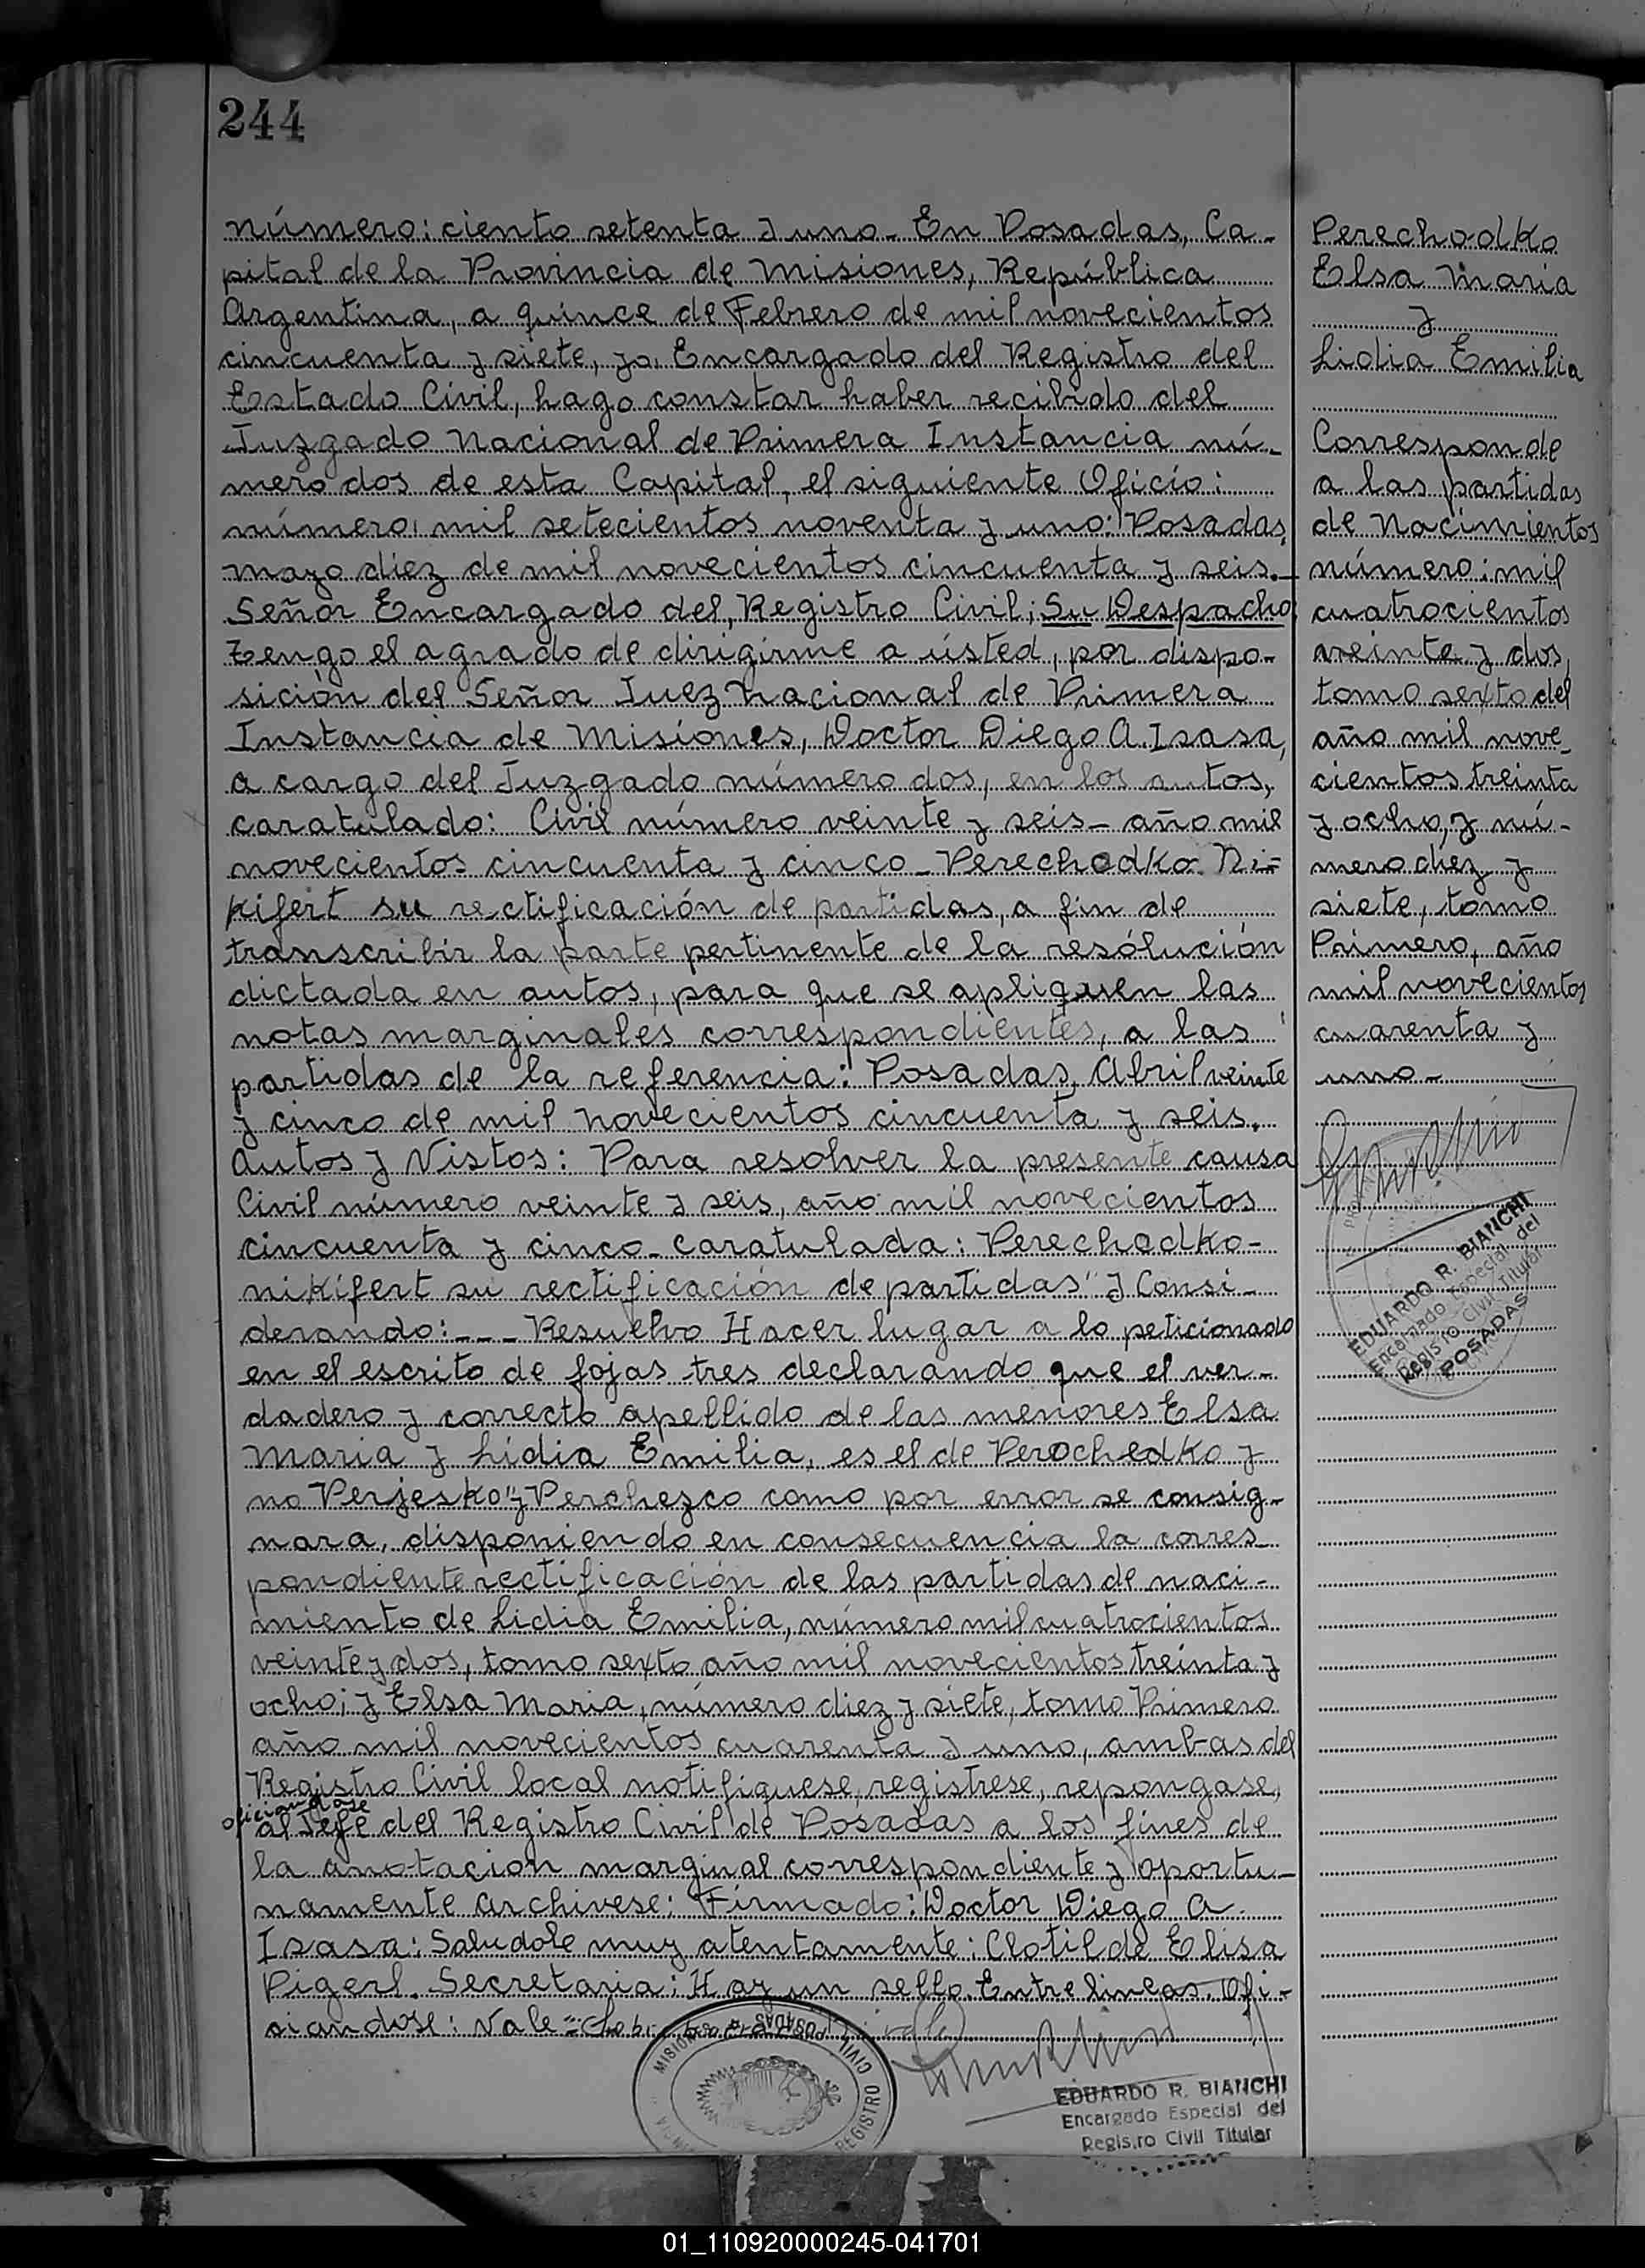 244
número: ciento setenta y uno_ En Posadas, Ca-
pital de la Provincia de Misiones, República
Argentina, a quince de Febrero de mil novecientos
cincuenta y siete, yo, Encargado del Registro del
Estado Civil, hago constar haber recibido del
Juzgado Nacional de Primera Instancia nú-
mero dos de esta Capital, el siguiente Oficio:
número: mil setecientos noventa y uno: Posadas,
mayo diez de mil novecientos cincuenta y seis._
Señor Encargado del, Registro Civil; Su Despacho:
Tengo el agrado de dirigirme a usted, por dispo-
sición del Señor Juez Nacional de Primera
Instancia de Misiones, Doctor Diego A. Isasa,
a cargo del Juzgado número dos, en los autos,
caratulado: Civil número veinte y seis_ año mil
novecientos cincuenta y cinco_ Perechodko Ni-
kifert su rectificación de partidas, a fin de
transcribir la parte pertinente de la resólución
dictada en autos, para que se apliquen las
notas marginales correspondientes, a las
partidas de la referencia: Posadas, Abril veinte
y cinco de mil novecientos cincuenta y seis.
Autos y Vistos: Para resolver la presente causa
Civil número veinte y seis, año mil novecientos
cincuenta y cinco_ caratulada: Perechodko-
nikifert su rectificación de partidas" y Consi-
derando:_ _ _ Resuelvo Hacer lugar a lo peticionado
en el escrito de fojas tres declarando que el ver-
dadero y correcto apellido de las menores Elsa
Maria y Lidia Emilia, es el de Perochedko y
no Perjesko" y Perchezco como por error se consig-
nara, disponiendo en consecuencia la corres-
pondiente rectificación de las partidas de naci-
miento de Lidia Emilia, número mil cuatrocientos
veinte y dos, tomo sexto año mil novecientos treinta y
ocho; y Elsa Maria, número diez y siete, tomo Primero
año mil novecientos cuarenta y uno, ambas del
Registro Civil local notifiquese, registrese, repongase,
oficiandose
al Jefe del Registro Civil de Posadas a los fines de
la anotacion marginal correspondiente y oportu-
namente archivese: Firmado: Doctor Diego A.
Isasa: Saludole muy atentamente: Clotilde Elisa
Pigerl. Secretaria: Hay un sello. Entre lineas. Ofi-
siandose: Vale=
REGISTRO CIVIL POSADAS MISIONES
EDUARDO R. BIANCHI
Encargado Especial del
Regis.ro Civil Titular
Perechodko
Elsa Maria
y
Lidia Emilia
Corresponde
a las partidas
de Nacimientos
número: mil
cuatrocientos
veinte y dos,
tomo sexto del
año mil nove_
cientos treinta
y ocho, y nú-
mero diez y
siete, tomo
Primero, año
mil novecientos
cuarenta y
uno_
EDUARDO R. BIANCHI
Encargado Especial del
Registro Civil Titular
POSADAS
01_110920000245-041701